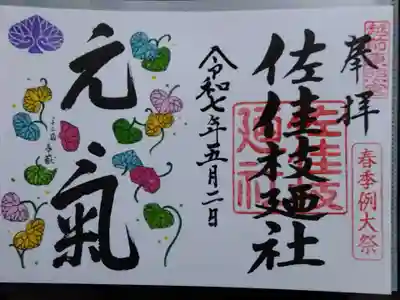 奉拝
春季例大祭
佐佳枝廼社
佐佳枝
廼社
令和七年五月二日
元氣